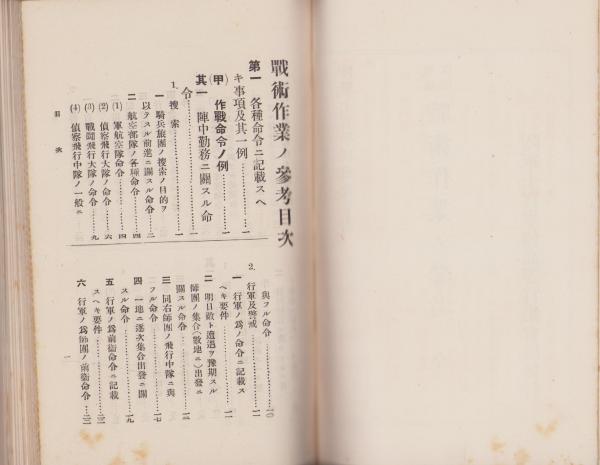 戰術作業ノ參考目次
第一 各種命令ニ記載スヘ
キ事項及其一例……………一
(甲) 作戰命令ノ例……………一
其一 陣中勤務ニ關スル命
令……………一
1. 搜索……………一
一 騎兵旅團ノ搜索ノ目的ヲ
以テスル前進ニ關スル命令……二
二 航空部隊ノ各種命令………四
(1) 軍航空隊命令……………四
(2) 偵察飛行大隊ノ命令………六
(3) 戰鬪飛行大隊ノ命令………九
(4) 偵察飛行中隊ノ一般ニ
目次
與フル命令……………一〇
2. 行軍及警戒……………一一
一 行軍ノ爲ノ命令ニ記載ス
ヘキ要件……………一一
二 明日敵ト遭遇ヲ豫期スル
師團ノ集合(數地ニ)出發ニ
關スル命令……………一三
三 同右師團ノ飛行中隊ニ與
フル命令……………一七
四 一地ニ逐次集合出發ニ關
スル命令……………一九
五 行軍ノ爲前衞命令ニ記載
スヘキ要件……………二一
六 行軍ノ爲師團ノ前衞命令……二二
一